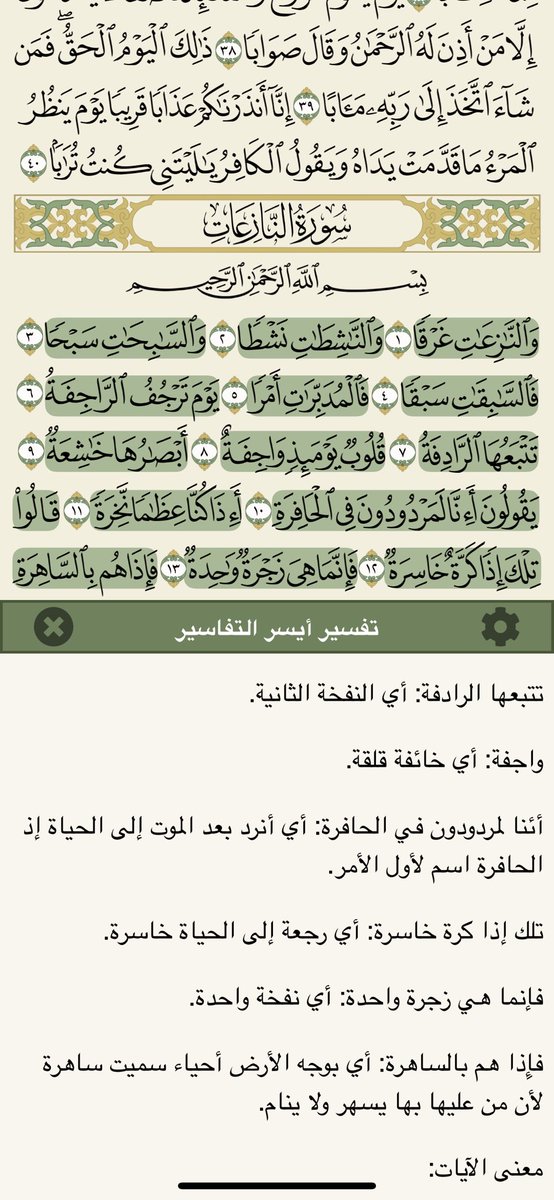 إِلَّا مَنْ أَذِنَ لَهُ ٱلرَّحْمَٰنُ وَقَالَ صَوَابًا ٣٨ ذَٰلِكَ ٱلْيَوْمُ ٱلْحَقُّۖ فَمَن
شَآءَ ٱتَّخَذَ إِلَىٰ رَبِّهِۦ مَـَٔابًا ٣٩ إِنَّآ أَنذَرْنَٰكُمْ عَذَابًا قَرِيبًا يَوْمَ يَنظُرُ
ٱلْمَرْءُ مَا قَدَّمَتْ يَدَاهُ وَيَقُولُ ٱلْكَافِرُ يَٰلَيْتَنِى كُنتُ تُرَٰبًۢا ٤٠
سُورَةُ النَّازِعَاتِ
بِسْمِ ٱللَّهِ ٱلرَّحْمَٰنِ ٱلرَّحِيمِ
وَٱلنَّٰزِعَٰتِ غَرْقًا ١ وَٱلنَّٰشِطَٰتِ نَشْطًا ٢ وَٱلسَّٰبِحَٰتِ سَبْحًا ٣
فَٱلسَّٰبِقَٰتِ سَبْقًا ٤ فَٱلْمُدَبِّرَٰتِ أَمْرًا ٥ يَوْمَ تَرْجُفُ ٱلرَّاجِفَةُ ٦
تَتْبَعُهَا ٱلرَّادِفَةُ ٧ قُلُوبٌ يَوْمَئِذٍ وَاجِفَةٌ ٨ أَبْصَٰرُهَا خَٰشِعَةٌ ٩
يَقُولُونَ أَءِنَّا لَمَرْدُودُونَ فِى ٱلْحَافِرَةِ ١٠ أَءِذَا كُنَّا عِظَٰمًا نَّخِرَةً ١١ قَالُوا۟
تِلْكَ إِذًا كَرَّةٌ خَاسِرَةٌ ١٢ فَإِنَّمَا هِىَ زَجْرَةٌ وَٰحِدَةٌ ١٣ فَإِذَا هُم بِٱلسَّاهِرَةِ
تفسير أيسر التفاسير
تتبعها الرادفة: أي النفخة الثانية.
واجفة: أي خائفة قلقة.
أئنا لمردودون في الحافرة: أي أنرد بعد الموت إلى الحياة إذ
الحافرة اسم لأول الأمر.
تلك إذا كرة خاسرة: أي رجعة إلى الحياة خاسرة.
فإنما هي زجرة واحدة: أي نفخة واحدة.
فإذا هم بالساهرة: أي بوجه الأرض أحياء سميت ساهرة
لأن من عليها بها يسهر ولا ينام.
معنى الآيات: